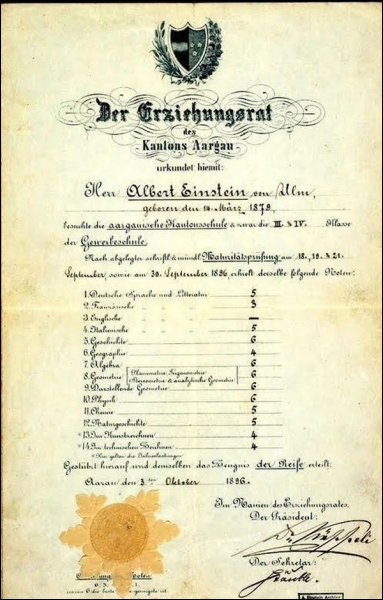 Der Erziehungsrat
des
Kantons Aargau
urkundet hiemit:
Herr Albert Einstein von Ulm,
geboren den 14. März 1879,
besuchte die aargauische Kantonsschule & zwar die III. & IV. Klasse
der Gewerbeschule.
Nach abgelegter schriftl. & mündl. Maturitätsprüfung am 18., 19. & 21.
September, sowie am 30. September 1896, erhielt derselbe folgende Noten:
1. Deutsche Sprache und Litteratur 5
2. Französische 3
3. Englische —
4. Italienische 5
5. Geschichte 6
6. Geographie 4
7. Algebra 6
8. Geometrie (Planimetrie, Trigonometrie Stereometrie & analytische Geometrie) 6
9. Darstellende Geometrie 6
10. Physik 6
11. Chemie 5
12. Naturgeschichte 5
* 13. Im Kunstzeichnen 4
* 14. Im technischen Zeichnen 4
* Hier gelten die Jahresleistungen
Gestützt hierauf wird demselben das Zeugnis der Reife erteilt.
Aarau den 3ten Oktober 1896.
Im Namen des Erziehungsrates,
Der Präsident:
Der Sekretär: